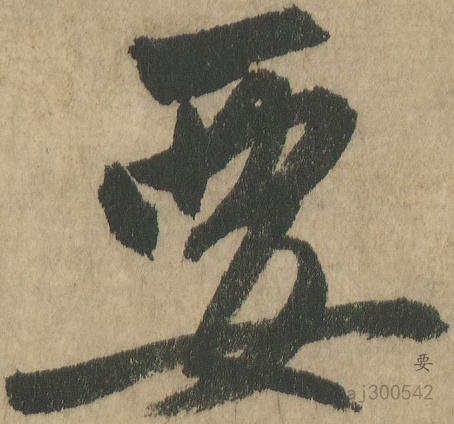 要
要
aj300542